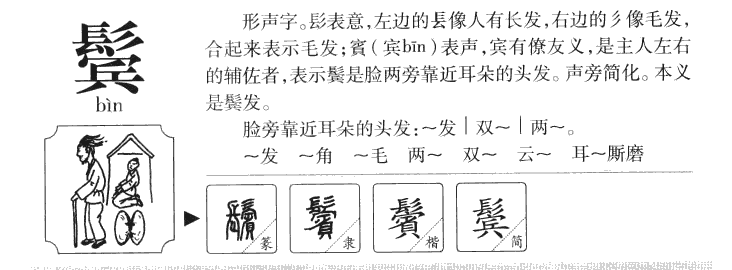 鬓
bìn
形声字。髟表意，左边的镸像人有长发，右边的彡像毛发，
合起来表示毛发；賓（宾bīn）表声，宾有僚友义，是主人左右
的辅佐者，表示鬓是脸两旁靠近耳朵的头发。声旁简化。本义
是鬓发。
脸旁靠近耳朵的头发：～发｜双～｜两～。
～发　～角　～毛　两～　双～　云～　耳～厮磨
鬢 篆
鬢 隶
鬢 楷
鬓 简